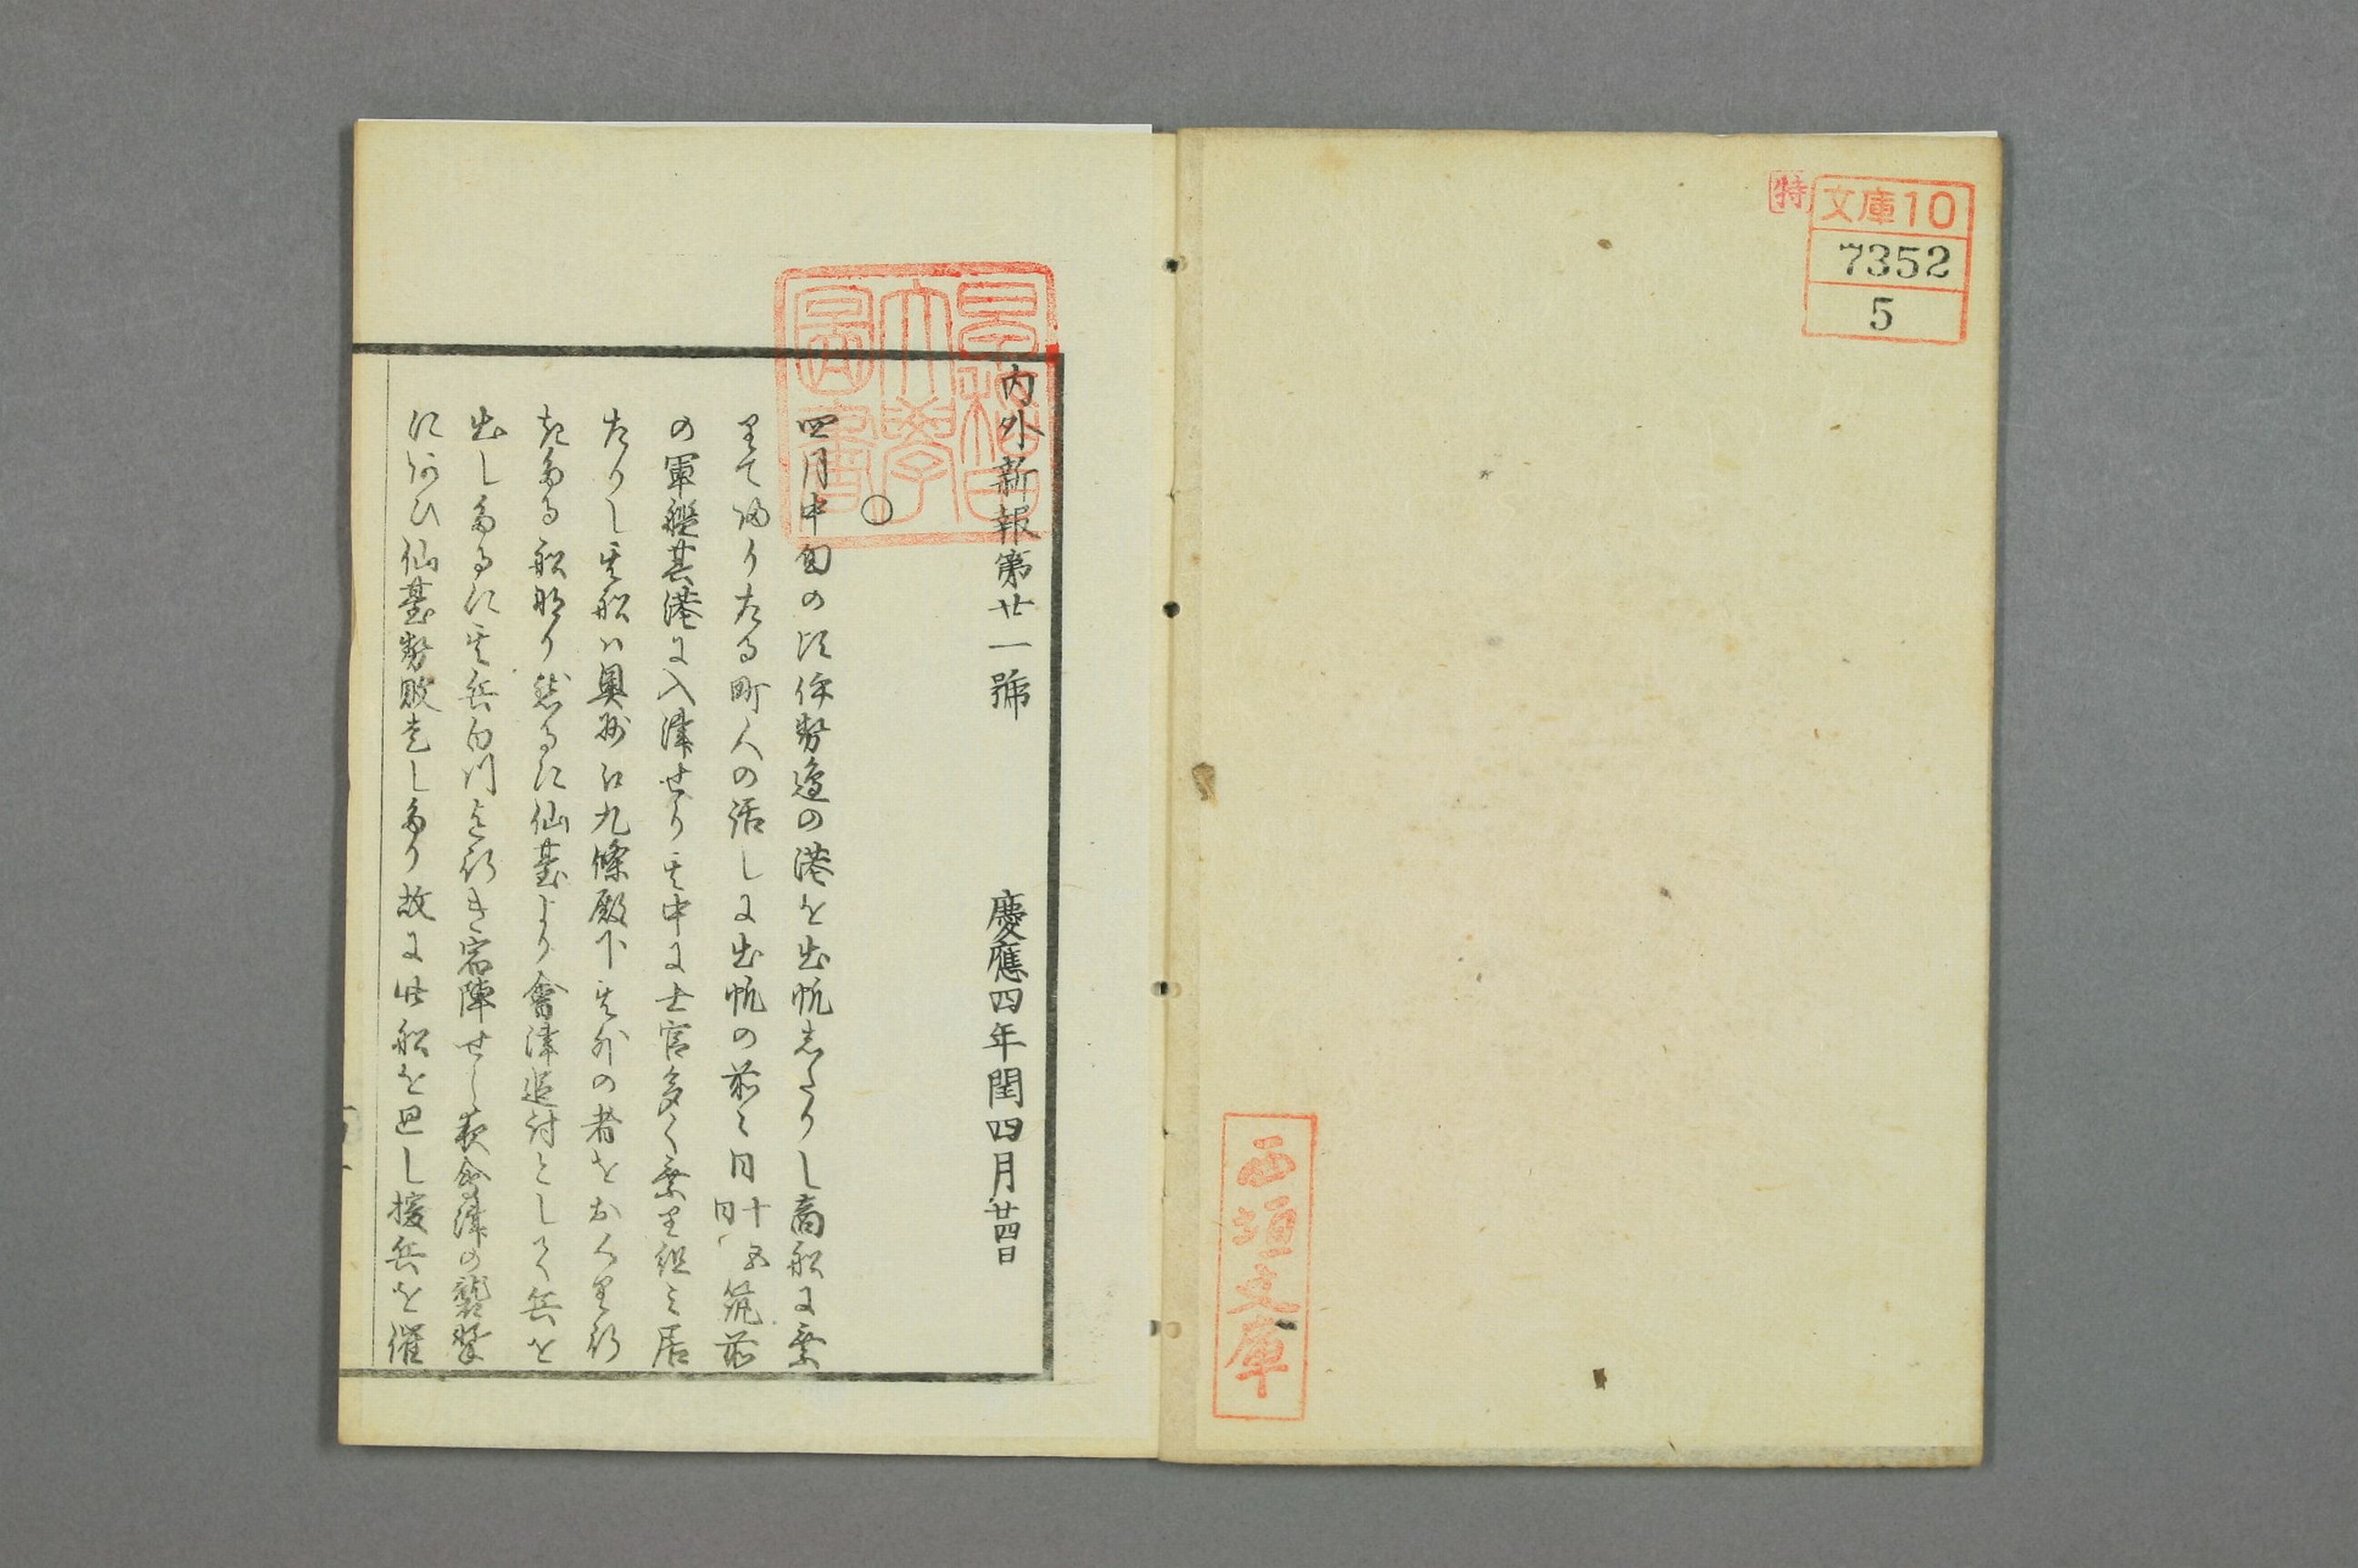 特
文庫10
7352
5
西垣文庫
早稲田大學圖書
内外新報第廿一號 慶應四年閏四月廿四日
○
四月中旬の頃伊勢邊の港を出帆したりし商船に乘
りて帰りたる町人の話しに出帆の前々日十五日筑前
の軍艦其港に入津せり其中に士官多く乘り組み居
たりし其船ハ奥州江九條殿下其外の者をおくり行
きたる船なり然るに仙臺より會津追討として兵を
出したるに其兵白川迄行き宿陣せし夜會津の襲撃
にあひ仙臺勢敗走したり故に此船を廻し援兵を催